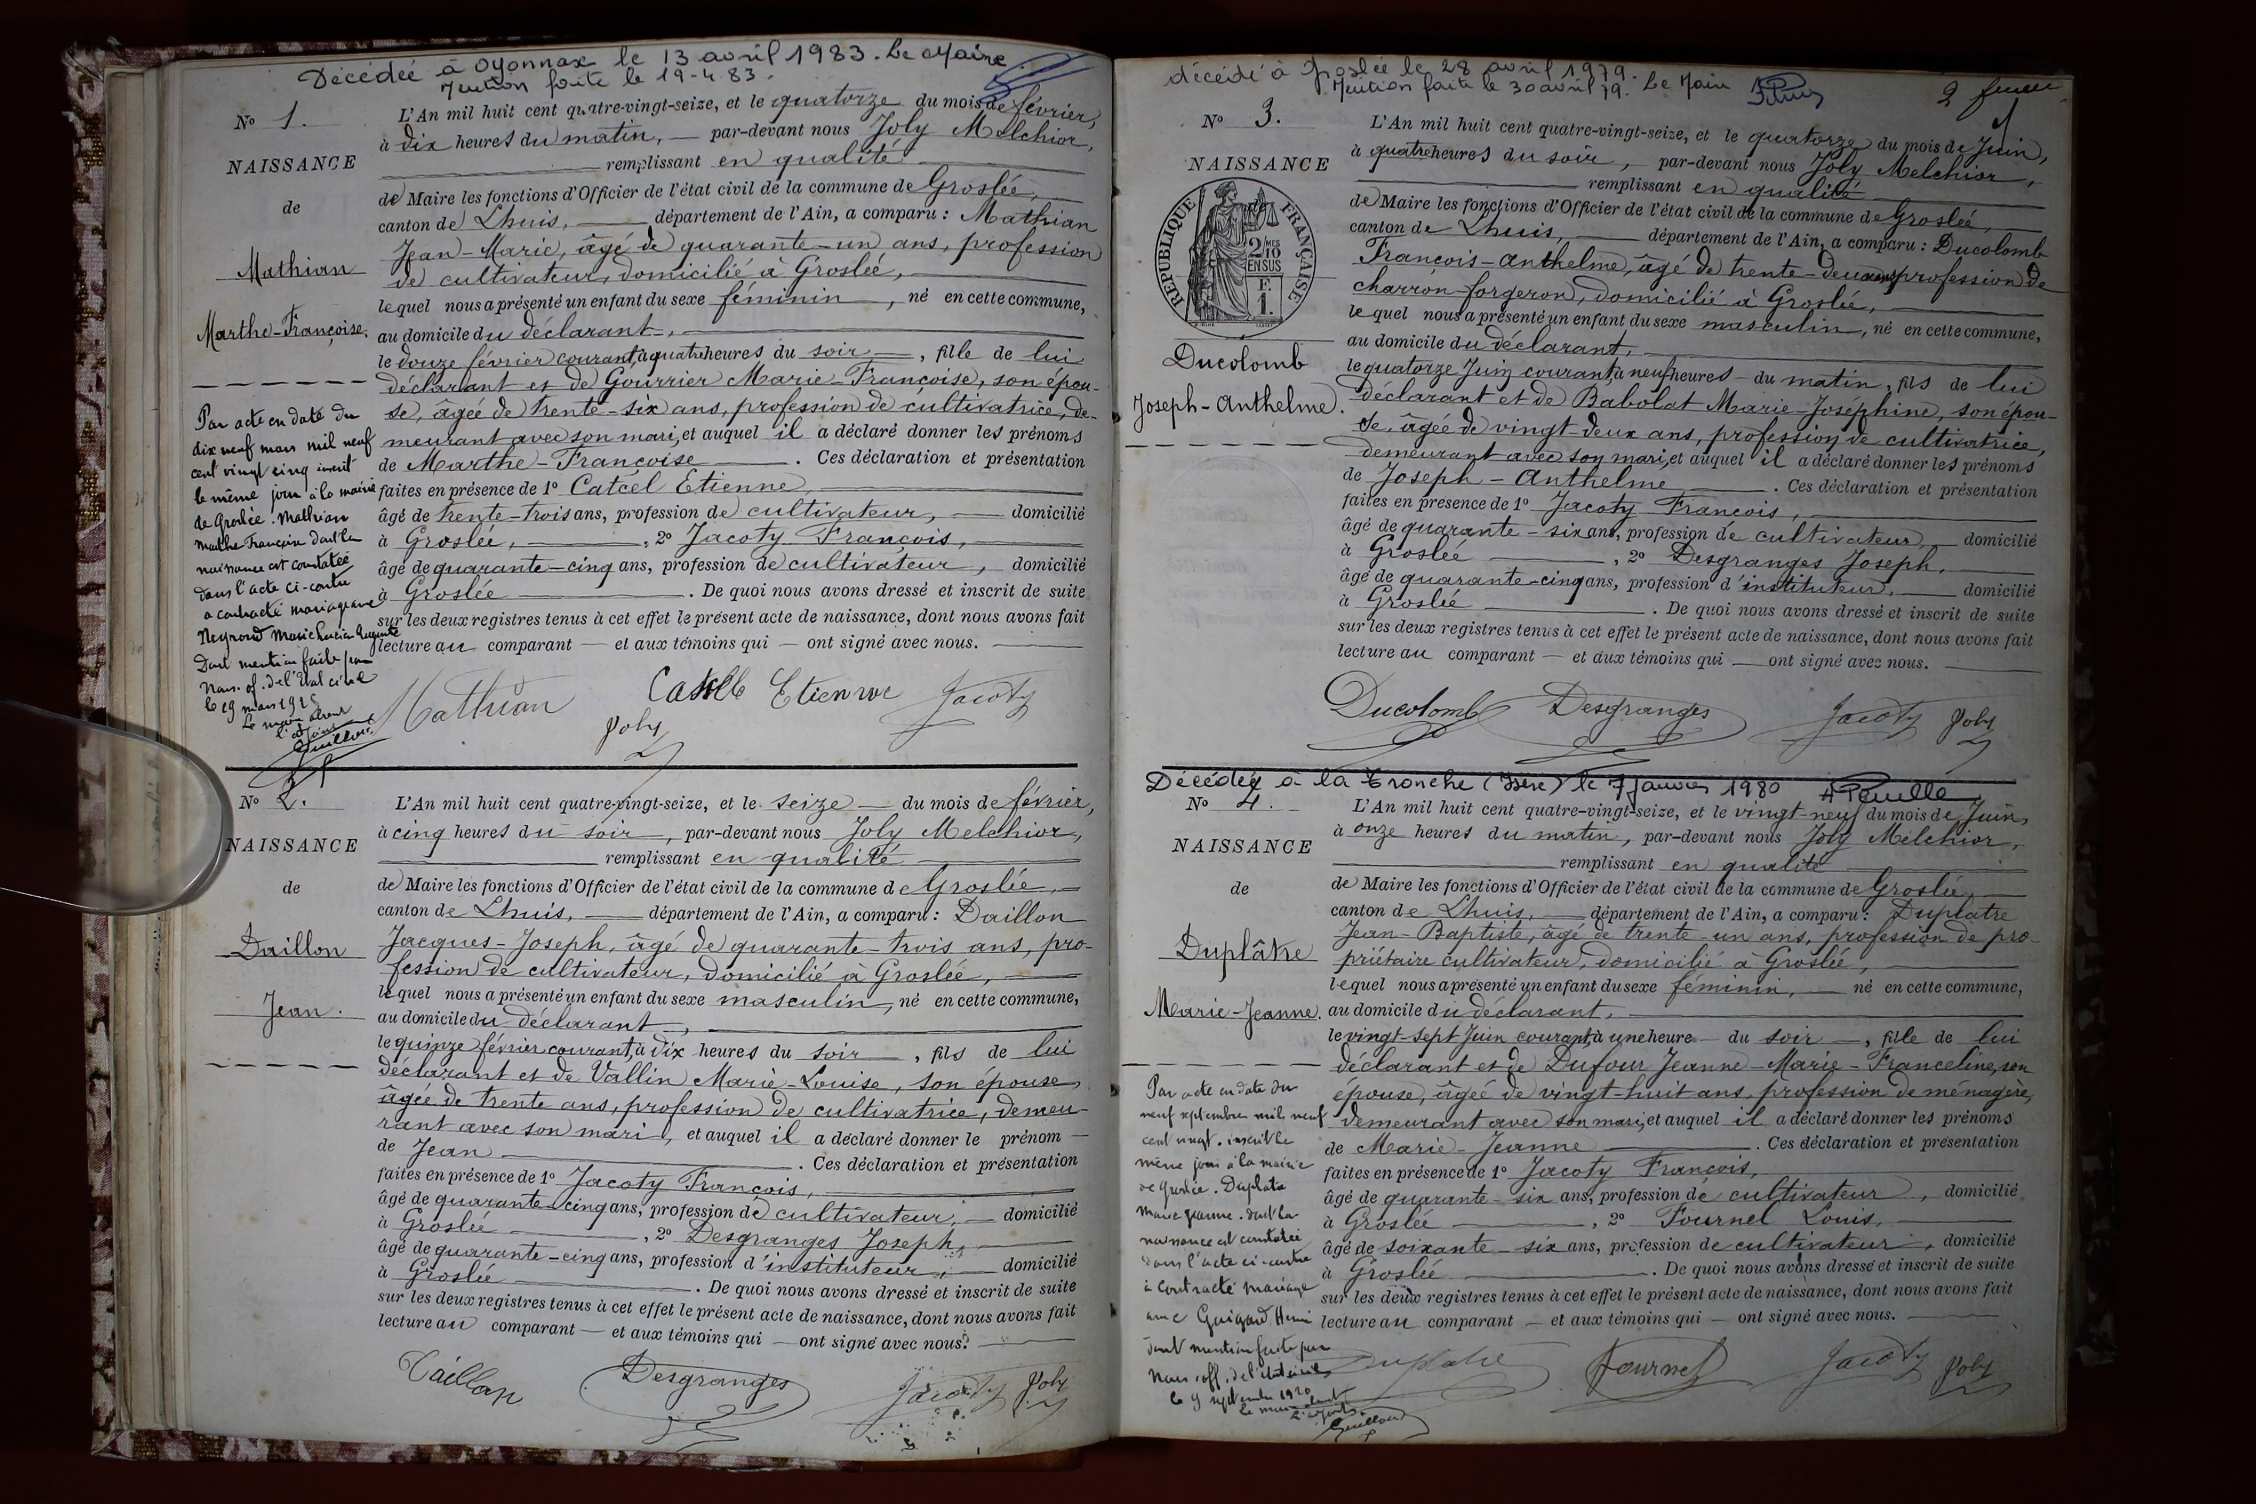 Décédée à Oyonnax le 13 avril 1983. Le Maire
Mention faite le 19-4-83.
N° 1.
NAISSANCE
de
Mathian
Marthe-Françoise.
L'An mil huit cent quatre-vingt-seize, et le quatorze du mois de février,
à dix heures du matin, par-devant nous Joly Melchior,
remplissant en qualité
de Maire les fonctions d'Officier de l'état civil de la commune de Groslée,
canton de Lhuis, département de l'Ain, a comparu : Mathian
Jean-Marie, âgé de quarante-un ans, profession
de cultivateur, domicilié à Groslée,
lequel nous a présenté un enfant du sexe féminin, né en cette commune,
au domicile du déclarant,
le douze février courant, à quatre heures du soir, fille de lui
déclarant et de Gourrier Marie-Françoise, son épou-
se, âgée de trente-six ans, profession de cultivatrice, de-
meurant avec son mari, et auquel il a déclaré donner les prénoms
de Marthe-Françoise. Ces déclaration et présentation
faites en présence de 1° Catcel Etienne,
âgé de trente-trois ans, profession de cultivateur, domicilié
à Groslée, 2° Jacoty François,
âgé de quarante-cinq ans, profession de cultivateur, domicilié
à Groslée. De quoi nous avons dressé et inscrit de suite
sur les deux registres tenus à cet effet le présent acte de naissance, dont nous avons fait
lecture au comparant — et aux témoins qui — ont signé avec nous.
Par acte en date du
dix neuf mars mil neuf
cent vingt cinq inscrit
le même jour à la mairie
de Groslée. Mathian
Marthe Françoise dont la
naissance est constatée
dans l'acte ci-contre
a contracté mariage avec
Neyroud Marie Lucien Auguste
Dont mention faite par
Nous. of. de l'Etat civil
le 19 mars 1925
Le maire absent
L'adjoint
Guilloud
Mathian Catcel Etienne Jacoty
Joly
N° 2.
NAISSANCE
de
Daillon
Jean.
L'An mil huit cent quatre-vingt-seize, et le seize du mois de février,
à cinq heures du soir, par-devant nous Joly Melchior,
remplissant en qualité
de Maire les fonctions d'Officier de l'état civil de la commune de Groslée,
canton de Lhuis, département de l'Ain, a comparu : Daillon
Jacques-Joseph, âgé de quarante-trois ans, pro-
fession de cultivateur, domicilié à Groslée,
lequel nous a présenté un enfant du sexe masculin, né en cette commune,
au domicile du déclarant,
le quinze février courant, à dix heures du soir, fils de lui
déclarant et de Vallin Marie-Louise, son épouse,
âgée de trente ans, profession de cultivatrice, demeu-
rant avec son mari, et auquel il a déclaré donner le prénom
de Jean. Ces déclaration et présentation
faites en présence de 1° Jacoty François,
âgé de quarante-cinq ans, profession de cultivateur, domicilié
à Groslée, 2° Desgranges Joseph,
âgé de quarante-cinq ans, profession d'instituteur, domicilié
à Groslée. De quoi nous avons dressé et inscrit de suite
sur les deux registres tenus à cet effet le présent acte de naissance, dont nous avons fait
lecture au comparant — et aux témoins qui — ont signé avec nous.
Daillon Desgranges Jacoty Joly
décédé à Groslée le 28 avril 1979.
Mention faite le 30 avril 79. Le Maire
2
N° 3.
NAISSANCE
RÉPUBLIQUE FRANÇAISE
2/10 MES
EN SUS
F.
1.
Ducolomb
Joseph-Anthelme.
L'An mil huit cent quatre-vingt-seize, et le quatorze du mois de Juin,
à quatre heures du soir, par-devant nous Joly Melchior,
remplissant en qualité
de Maire les fonctions d'Officier de l'état civil de la commune de Groslée,
canton de Lhuis, département de l'Ain, a comparu : Ducolomb
François-Anthelme, âgé de trente-deux ans, profession de
charron-forgeron, domicilié à Groslée,
lequel nous a présenté un enfant du sexe masculin, né en cette commune,
au domicile du déclarant,
le quatorze Juin courant, à neuf heures du matin, fils de lui
déclarant et de Babolat Marie-Joséphine, son épou-
se, âgée de vingt-deux ans, profession de cultivatrice,
demeurant avec son mari, et auquel il a déclaré donner les prénoms
de Joseph-Anthelme. Ces déclaration et présentation
faites en présence de 1° Jacoty François,
âgé de quarante-six ans, profession de cultivateur, domicilié
à Groslée, 2° Desgranges Joseph,
âgé de quarante-cinq ans, profession d'instituteur, domicilié
à Groslée. De quoi nous avons dressé et inscrit de suite
sur les deux registres tenus à cet effet le présent acte de naissance, dont nous avons fait
lecture au comparant — et aux témoins qui — ont signé avec nous.
Ducolomb Desgranges Jacoty Joly
Décédée à la Tronche (Isère) le 7 janvier 1980
N° 4.
NAISSANCE
de
Duplâtre
Marie-Jeanne.
L'An mil huit cent quatre-vingt-seize, et le vingt-neuf du mois de Juin,
à onze heures du matin, par-devant nous Joly Melchior,
remplissant en qualité
de Maire les fonctions d'Officier de l'état civil de la commune de Groslée,
canton de Lhuis, département de l'Ain, a comparu : Duplatre
Jean-Baptiste, âgé de trente-un ans, profession de pro-
priétaire cultivateur, domicilié à Groslée,
lequel nous a présenté un enfant du sexe féminin, né en cette commune,
au domicile du déclarant,
le vingt-sept Juin courant, à une heure du soir, fille de lui
déclarant et de Dufour Jeanne-Marie-Franceline, son
épouse, âgée de vingt-huit ans, profession de ménagère,
demeurant avec son mari, et auquel il a déclaré donner les prénoms
de Marie-Jeanne. Ces déclaration et présentation
faites en présence de 1° Jacoty François,
âgé de quarante-six ans, profession de cultivateur, domicilié
à Groslée, 2° Fournel Louis,
âgé de soixante-six ans, profession de cultivateur, domicilié
à Groslée. De quoi nous avons dressé et inscrit de suite
sur les deux registres tenus à cet effet le présent acte de naissance, dont nous avons fait
lecture au comparant — et aux témoins qui — ont signé avec nous.
Par acte en date du
neuf septembre mil neuf
cent vingt. inscrit le
même jour à la mairie
de Groslée. Duplatre
Marie Jeanne. dont la
naissance est constatée
dans l'acte ci-contre
a contracté mariage
avec Guigard Henri
dont mention faite par
Nous. off. de l'état civil
le 9 septembre 1920
Le maire absent
L'adjoint
Guilloud
Duplatre Fournel Jacoty Joly